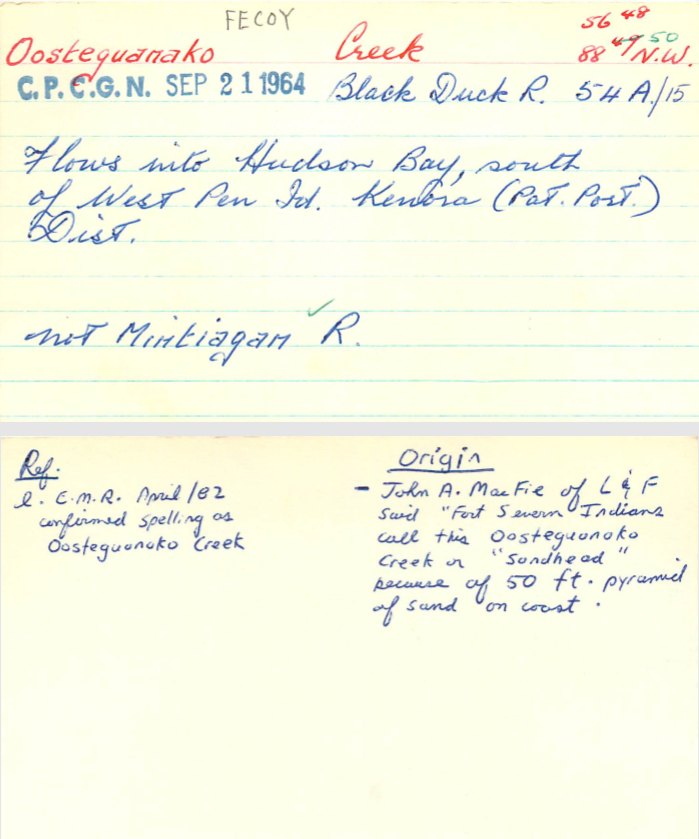 FECOY
Oosteguanako Creek 56 48
88 49 50 N.W.
C.P.C.G.N. SEP 21 1964 Black Duck R. 54 A/15
Flows into Hudson Bay, south
of West Pen Id. Kenora (Pat. Port.)
Dist.
not Mintiagan R.
Ref:
l. E.M.R. April/82
confirmed spelling as
Oosteguanako Creek
Origin
- John A. MacFie of L & F
said "Fort Severn Indians
call this Oosteguanako
Creek or "Sandhead"
because of 50 ft. pyramid
of sand on coast.